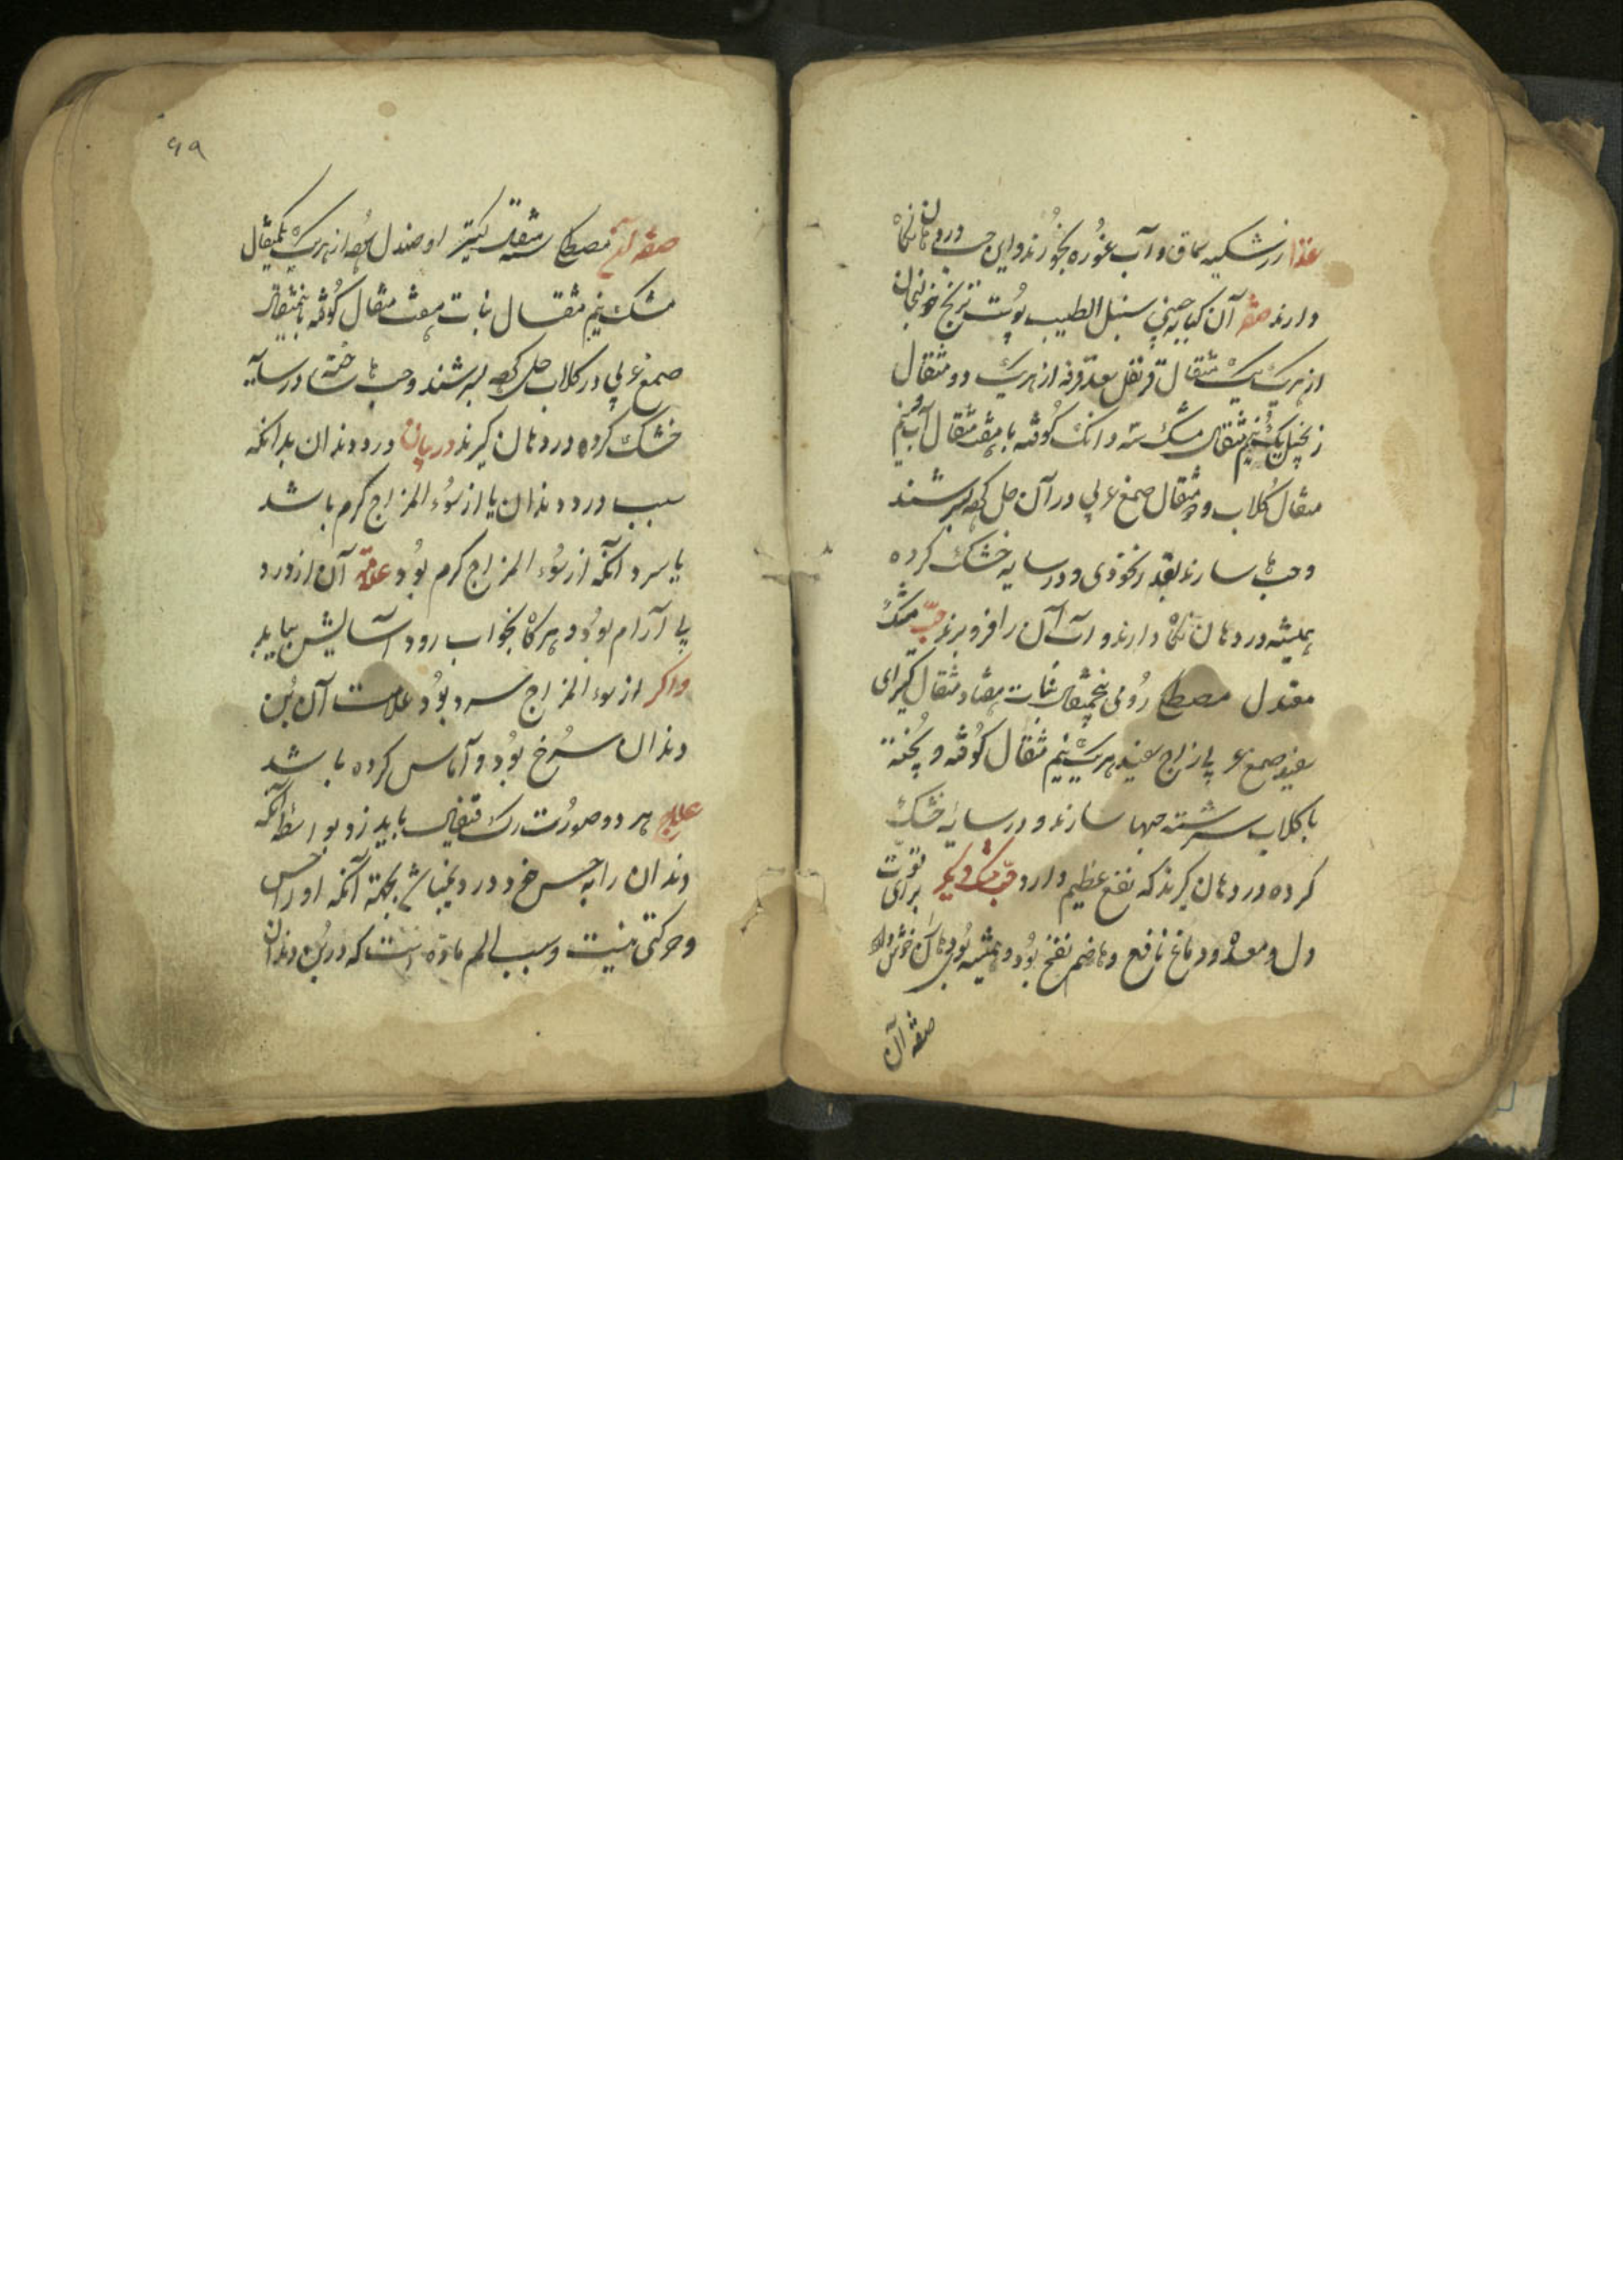 غذا زرشکیه سماق و آب غوره بخورند و این حب در دهان نگاه
دارند صفة آن کبابه چینی سنبل الطیب پوست ترنج خولنجان
از هریک یک مثقال قرنفل سعد قرفه از هریک دو مثقال
زنجبیل یک نیم مثقال مشک سه دانک کوفته با هفت مثقال آب
مثقال کلاب و دو مثقال صمغ عربی در آن حل کرده بسرشند
و حب ها سازند بقدر نخودی و در سایه خشک کرده
همیشه در دهان نگاه دارند و آب آن را فرو برند حب مشک
معتدل مصطکی رومی پنجمثقال نبات هفتاد مثقال کتیرای
سفید صمغ عربی از هریک نیم مثقال کوفته و پخته
با کلاب سرشته حبها سازند و در سایه خشک
کرده در دهان گیرند که نفع عظیم دارد حب مشک دیکر برای تقویت
دل و معده و دماغ نافع و هاضم نفخ بود و همیشه بوی دهان خوش دارد
صفة آن
۹۹
صفة آن مصطکی سه مثقال کتیرا و صندل از هریک یکمثقال
مشک نیم مثقال نبات هفت مثقال کوفته پنجمثقال
صمغ عربی در کلاب حل کرده بسرشند و حب ها ساخته در سایه
خشک کرده در دهان گیرند در بیان درد دندان بدانکه
سبب درد دندان یا از سوء المزاج کرم باشد
یا سرد آنکه از سوء المزاج کرم بود علامة آن از درد
بی آرام بود و هرکاه بخواب رود آسایش بیابد
و اکر از سوء المزاج سرد بود علامت آن بن
دندان سرخ بود و آماس کرده باشد
علاج هر دو صورت رک قیفال باید زد بواسطه آنکه
دندان را به حس خود درد بجهة آنکه او را حس
و حرکتی نیست و سبب الم ماده است که در بن دندان